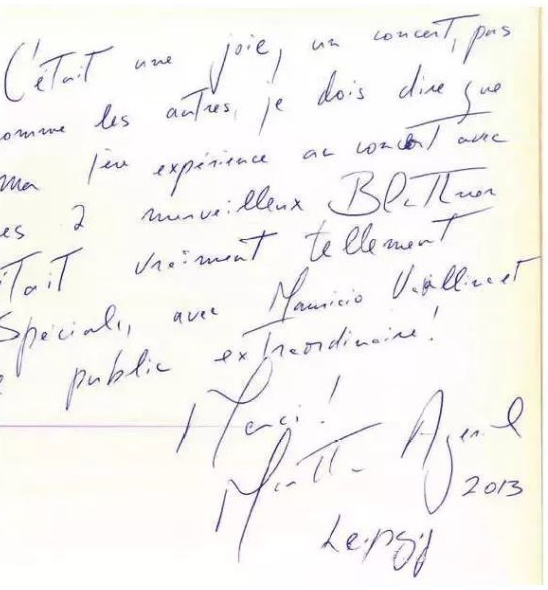 C'était une joie, un concert, pas
comme les autres, je dois dire que
ma 1ère expérience au concert avec
es 2 merveilleux Blüthner
était vraiment tellement
Spécial, avec Mauricio Vallina et
e public extraordinaire!
Merci!
Martha Argerich
2013
Leipzig